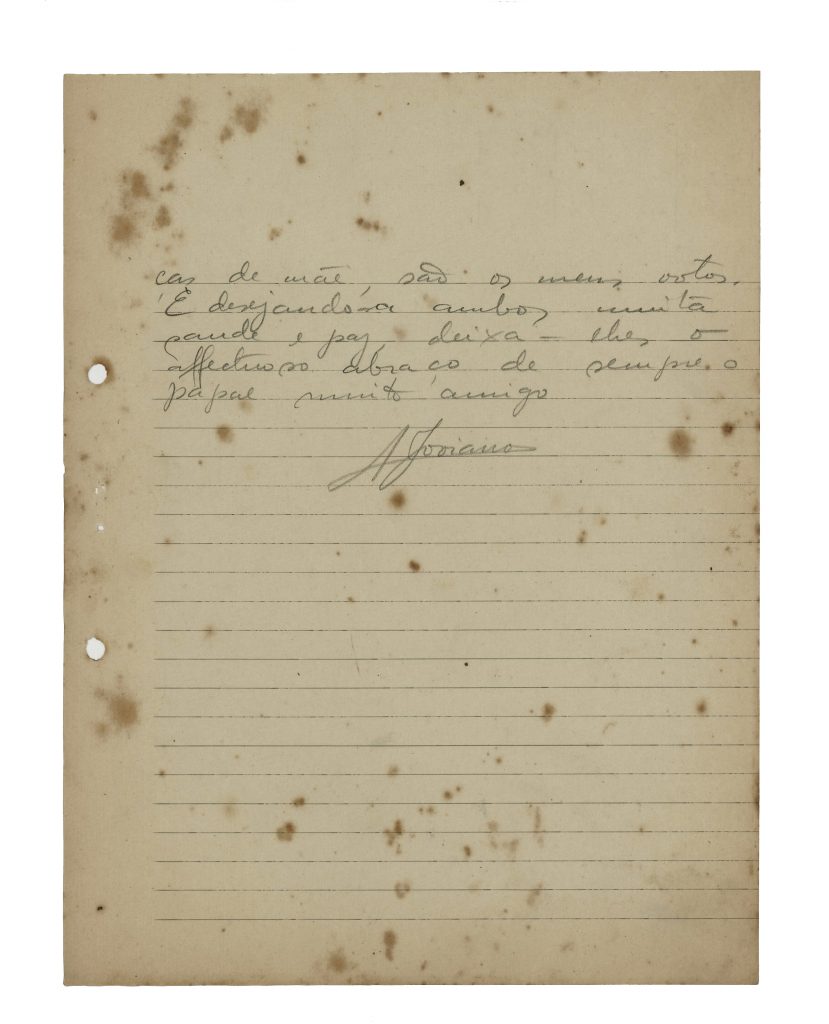 cas de mãe, são os meus votos.
E desejando a ambos muita
saude e paz, deixa-lhes o
affectuoso abraço de sempre o
papae muito amigo
A Joviano